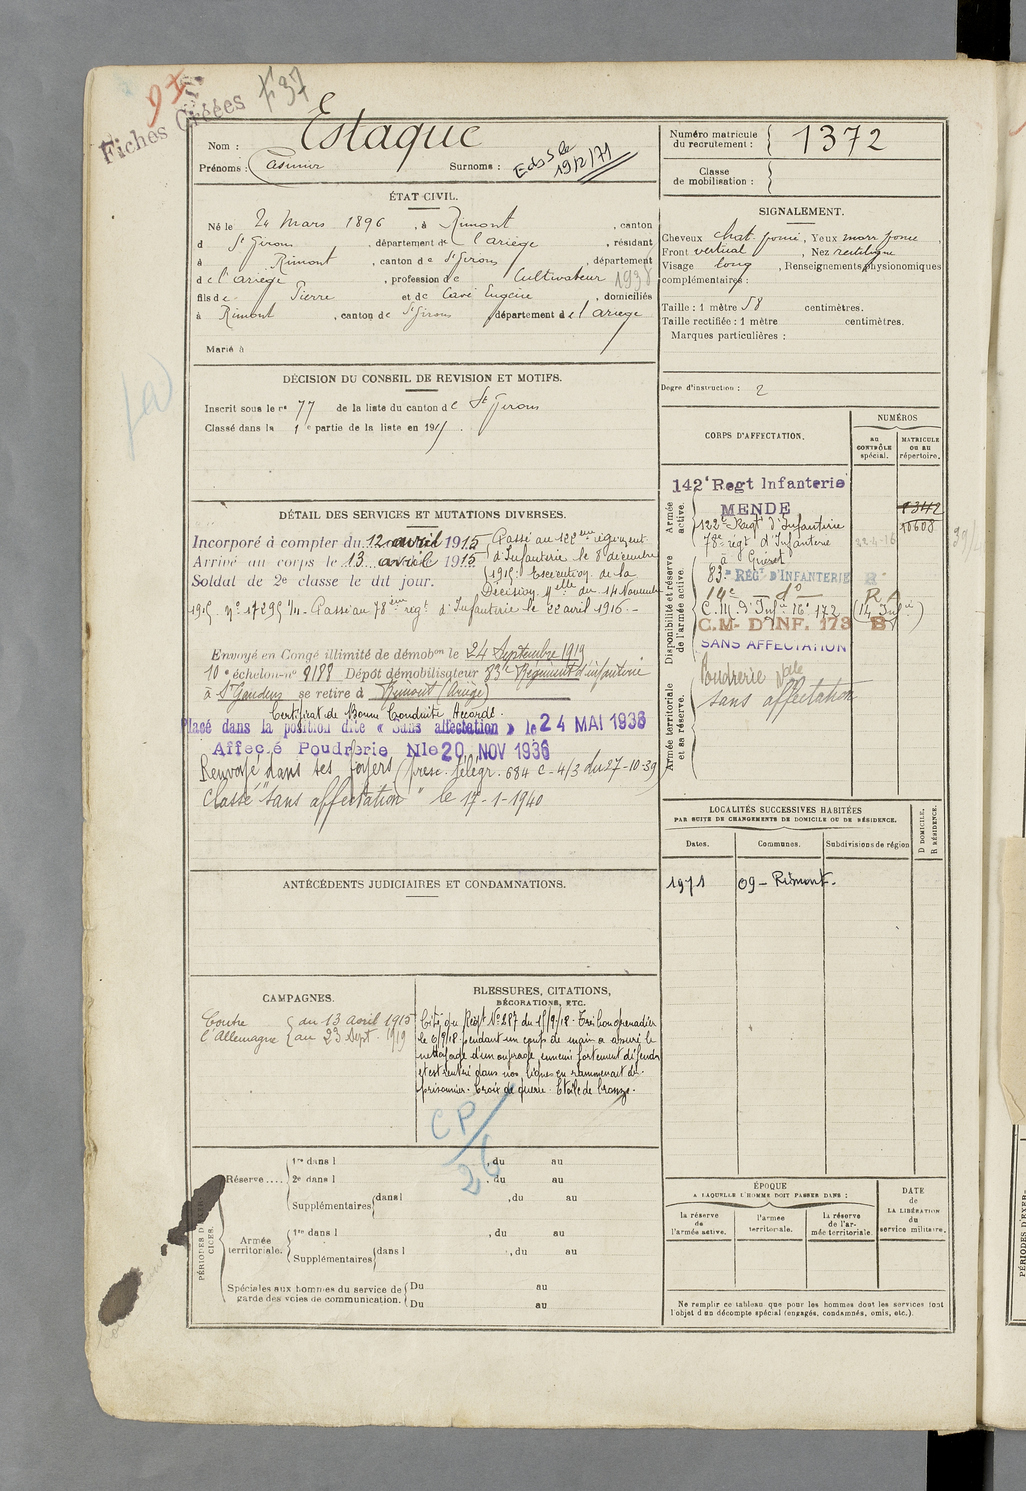 Fiches Créées F37
Nom : Estaque
Prénoms : Casimir Surnoms :
19/2/71
Numéro matricule
du recrutement : 1372
Classe
de mobilisation :
ÉTAT CIVIL.
Né le 24 Mars 1896, à Rimont, canton
d St Girons, département de l'ariège, résidant
à Rimont, canton de St Girons, département
de l'ariège, profession de Cultivateur 1938
fils de Pierre et de Cavé Eugénie, domiciliés
à Rimont, canton de St Girons, département de l'ariège
Marié à
SIGNALEMENT.
Cheveux chat. foncé, Yeux marr foncé,
Front vertical, Nez rectiligne
Visage long, Renseignements physionomiques
complémentaires :
Taille : 1 mètre 58 centimètres.
Taille rectifiée : 1 mètre centimètres.
Marques particulières :
Degré d'instruction : 2
DÉCISION DU CONSEIL DE REVISION ET MOTIFS.
Inscrit sous le no 77 de la liste du canton de St Girons
Classé dans la 1e partie de la liste en 1915.
DÉTAIL DES SERVICES ET MUTATIONS DIVERSES.
Incorporé à compter du 12 avril 1915 Passé au 122ème régiment
Arrivé au corps le 13 avril 1915. d'Infanterie le 8 décembre
Soldat de 2e classe le dit jour. 1915. Exécution de la
Décision Melle du 14 Novembre
1915 no 17295 1/11 - Passé au 78ème régt d'Infanterie le 22 avril 1916. -
Envoyé en Congé illimité de démobon le 24 Septembre 1919
10e échelon no 9188 Dépôt démobilisateur 83e Régiment d'infanterie
à St Gaudens se retire à Rimont (Ariège)
Certificat de Bonne Conduite Accordé.
Placé dans la position dite « Sans affectation » le 24 MAI 1936
Affecté Poudrerie Nle 20 NOV 1936
Renvoyé dans ses foyers (presc. télégr. 684 C-4/3 du 27-10-39)
Classé "sans affectation" le 17-1-1940
CORPS D'AFFECTATION.
NUMÉROS
au
CONTRÔLE
spécial.
MATRICULE
OU AU
répertoire.
Armée
active.
142e Regt Infanterie
MENDE
122e Régt d'Infanterie
78e régt d'Infanterie
à Guéret
1342
10608
22-4-16
Disponibilité et réserve
de l'armée active.
83e REGt D'INFANTERIE
14e - do -
C.M. d'Infie 16e 172
C.M- D'INF. 173 B
SANS AFFECTATION
Armée territoriale
et sa réserve.
Poudrerie Nale
sans affectation
LOCALITÉS SUCCESSIVES HABITÉES
PAR SUITE DE CHANGEMENTS DE DOMICILE OU DE RÉSIDENCE.
Dates. Communes. Subdivisions de région
D DOMICILE.
R RÉSIDENCE.
1971 09 - Rimont.
ANTÉCÉDENTS JUDICIAIRES ET CONDAMNATIONS.
CAMPAGNES.
Contre du 13 avril 1915
l'Allemagne au 23 Sept. 1919
BLESSURES, CITATIONS,
DÉCORATIONS, ETC.
Cité du Régt No 287 du 15/9/18. Très bon grenadier
le 6/9/18. pendant un coup de main a assuré le
nettoyage d'un ouvrage ennemi fortement défendu
et est rentré dans nos lignes en ramenant des
prisonniers. Croix de guerre. Etoile de bronze.
CP/26
PÉRIODES D'EXERCICES.
Réserve....
1re dans l , du au
2e dans l , du au
Supplémentaires dans l , du au
Armée
territoriale.
1re dans l , du au
Supplémentaires dans l , du au
Spéciales aux hommes du service de
garde des voies de communication.
Du au
Du au
ÉPOQUE
A LAQUELLE L'HOMME DOIT PASSER DANS :
la réserve
de
l'armée active.
l'armée
territoriale.
la réserve
de l'ar-
mée territoriale.
DATE
de
LA LIBÉRATION
du
service militaire.
Ne remplir ce tableau que pour les hommes dont les services font
l'objet d'un décompte spécial (engagés, condamnés, omis, etc.).
PÉRIODES D'EXER-